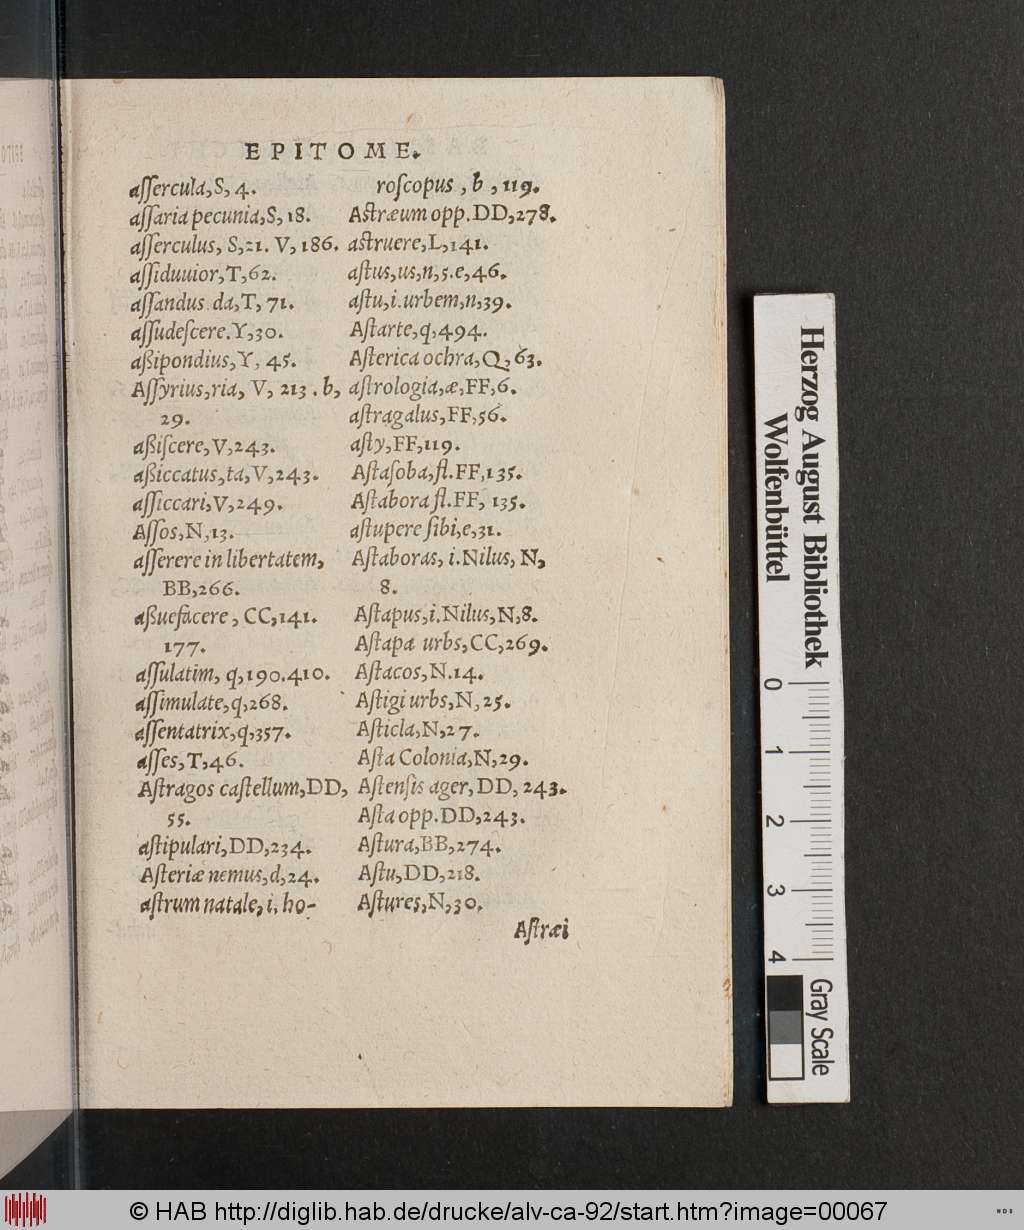 EPITOME.
aſſercula, S, 4.
aſſaria pecunia, S, 18.
aſſerculus, S, 21. V, 186.
aſſiduuior, T, 62.
aſſandus. da, T, 71.
aſſudeſcere. Y, 30.
aßipondius, Y, 45.
Aſſyrius, ria, V, 213. b,
29.
aßiſcere, V, 243.
aßiccatus, ta, V, 243.
aſſiccari, V, 249.
Aſſos, N, 13.
aſſerere in libertatem,
BB, 266.
aßuefacere, CC, 141.
177.
aſſulatim, q, 190. 410.
aſſimulate, q, 268.
aſſentatrix, q, 357.
aſſes, T, 46.
Aſtragos caſtellum, DD,
55.
aſtipulari, DD, 234.
Aſteriæ nemus, d, 24.
aſtrum natale, i, ho-
roſcopus, b, 119.
Aſtræum opp. DD, 278.
aſtruere, L, 141.
aſtus, us, n, 5. e, 46.
aſtu, i. urbem, n, 39.
Aſtarte, q, 494.
Aſterica ochra, Q, 63.
aſtrologia, æ, FF, 6.
aſtragalus, FF, 56.
aſty, FF, 119.
Aſtaſoba, fl. FF, 135.
Aſtabora fl. FF, 135.
aſtupere ſibi, e, 31.
Aſtaboras, i. Nilus, N,
8.
Aſtapus, i. Nilus, N, 8.
Aſtapa urbs, CC, 269.
Aſtacos, N. 14.
Aſtigi urbs, N, 25.
Aſticla, N, 27.
Aſta Colonia, N, 29.
Aſtenſis ager, DD, 243.
Aſta opp. DD, 243.
Aſtura, BB, 274.
Aſtu, DD, 218.
Aſtures, N, 30.
Aſtræi
Herzog August Bibliothek
Wolfenbüttel
0
1
2
3
4
Gray Scale
© HAB http://diglib.hab.de/drucke/alv-ca-92/start.htm?image=00067